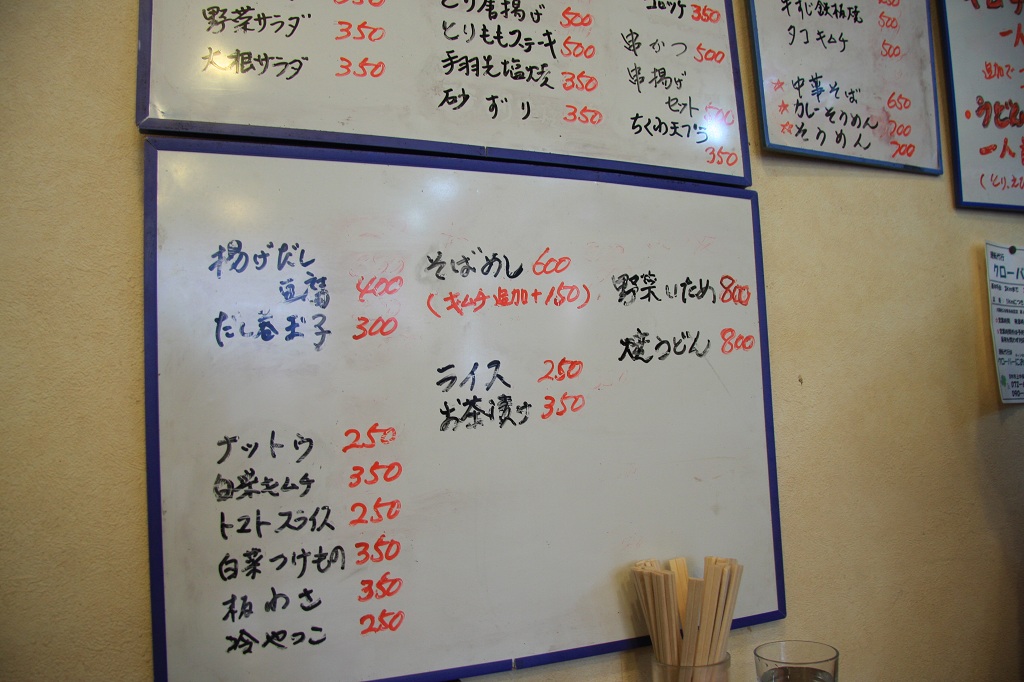 野菜サラダ 350
大根サラダ 350
とり唐揚げ 500
とりももステーキ 500
手羽先塩焼 350
砂ずり 350
コロッケ 350
串かつ 500
串揚げ
セット
ちくわ天プラ
350
牛すじ鉄板焼
タコキムチ 500
☆中華そば 650
☆カレーそうめん 700
☆そうめん 700
一人
追加で
・うどん
一人
揚げだし
豆腐 400
だし巻玉子 300
ナットウ 250
白菜キムチ 350
トマトスライス 250
白菜つけもの 350
板わさ 350
冷やっこ 250
そばめし 600
(キムチ追加+150)
ライス 250
お茶漬け 350
野菜いため 800
焼うどん 800
クローバ